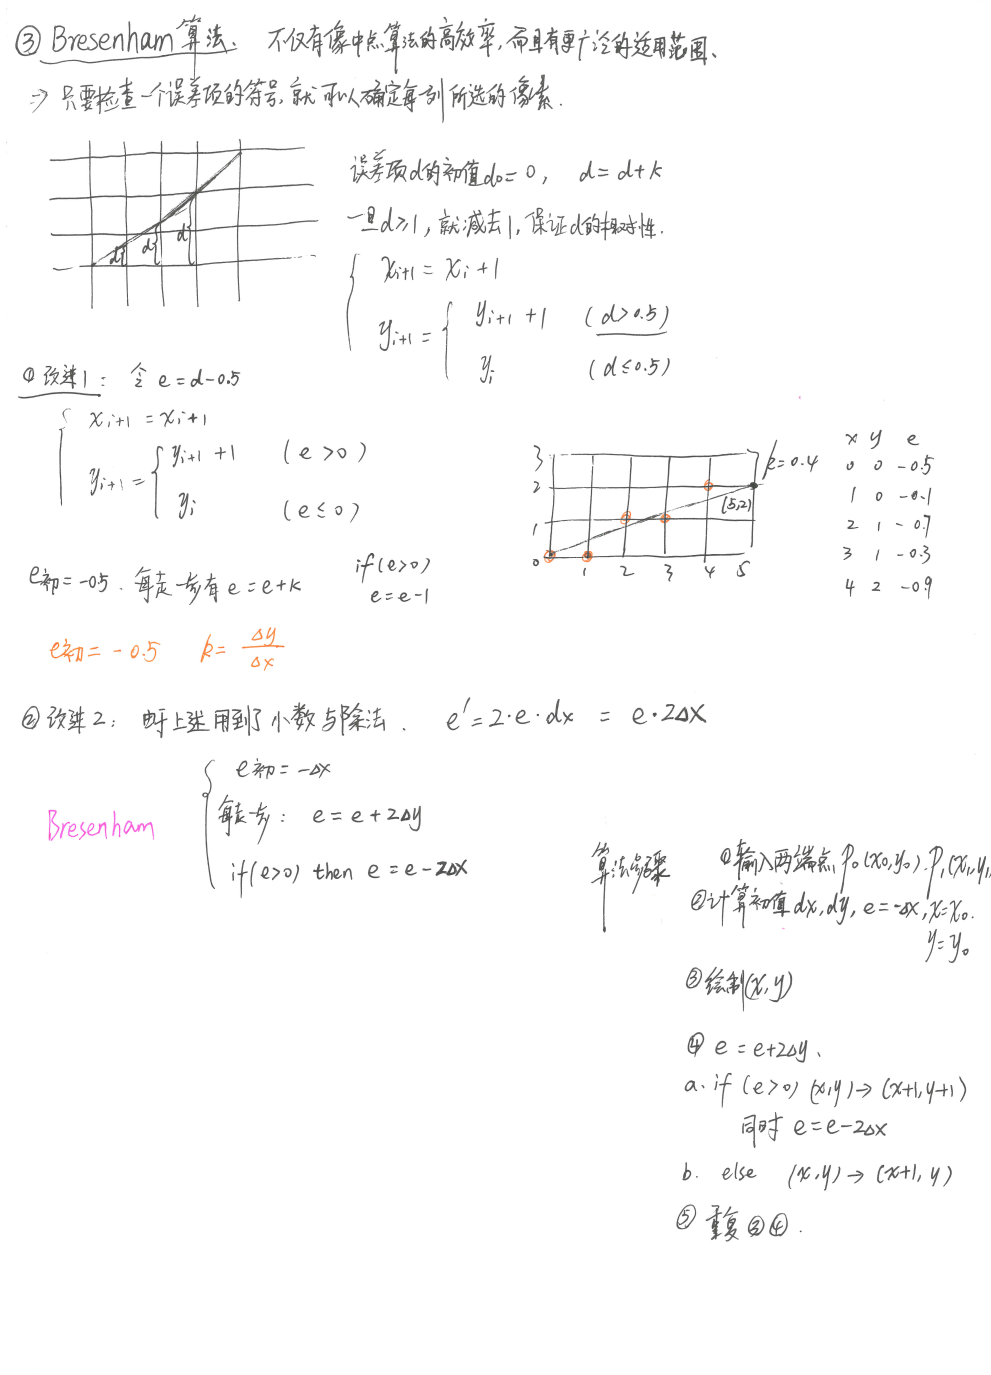 ③ Bresenham 算法、 不仅有像中点算法的高效率,而且有更广泛的适用范围、
⇒ 只要检查一个误差项的符号,就可以确定每列所选的像素.
误差项d的初值d₀=0, d=d+k
一旦d≥1,就减去1,保证d的相对性.
xᵢ₊₁ = xᵢ+1
yᵢ₊₁ = { yᵢ₊₁ +1 (d>0.5)
yᵢ (d≤0.5)
d d d
① 改进1: 令 e=d-0.5
xᵢ₊₁ = xᵢ+1
yᵢ₊₁ = { yᵢ₊₁ +1 (e>0)
yᵢ (e≤0)
e初=-0.5. 每走一步有 e=e+k if(e>0)
e=e-1
3
2
1
0 1 2 3 4 5
k=0.4
(5,2)
x y e
0 0 -0.5
1 0 -0.1
2 1 -0.7
3 1 -0.3
4 2 -0.9
e初=-0.5 k= Δy/Δx
② 改进2: 由于上述用到了小数与除法. e'=2·e·dx = e·2Δx
Bresenham
e初=-Δx
每走一步: e=e+2Δy
if(e>0) then e=e-2Δx
算法步骤
① 输入两端点 P₀(x₀,y₀).P₁(x₁,y₁
② 计算初值 dx,dy, e=-Δx, x=x₀.
y=y₀
③ 绘制(x,y)
④ e=e+2Δy、
a. if (e>0) (x,y)→(x+1,y+1)
同时 e=e-2Δx
b. else (x,y)→(x+1,y)
⑤ 重复③④.